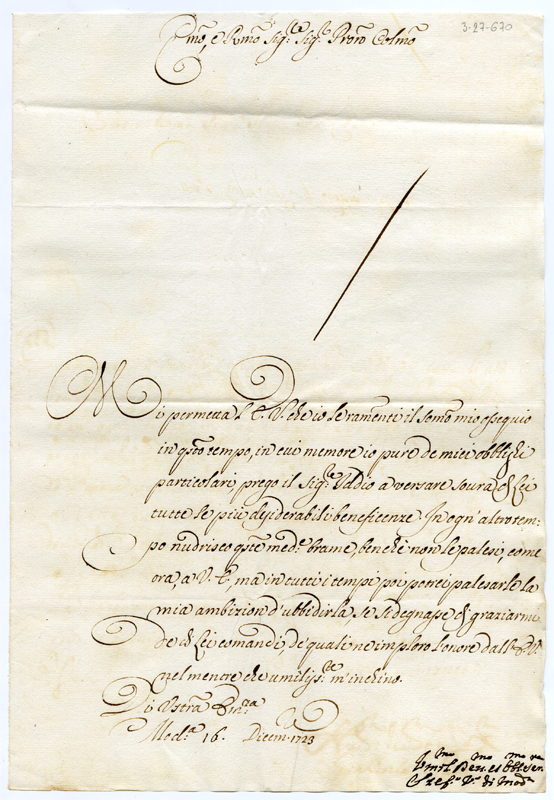 3-27-670
Emo, e Rmo Sigre Sigr Pron Colmo
Mi permetta l'E. V. che io le ramenti il somo mio ossequio
in qsto tempo, in cui memore io pure de miei obblighi
particolari prego il Sigre Iddio a versare soura di Lei
tutte le più desiderabili beneficenze. In ogn' altro tem-
po nudrisco qste medme brame, benchè non le palesi, come
ora, a V. E., ma in tutti i tempi poi potrei palesarle la
mia ambizion d'ubbidirla, se si degnasse di graziarmi
de di Lei comandi, de' quali ne imploro l'onore dall' E. V.
nel mentre che umilisste m'inchino.
Di Vostra Emza
Moda 16. Dicem. 1723
Umilmo Devmo et Obblmo serre
Stefo Vo di Moda